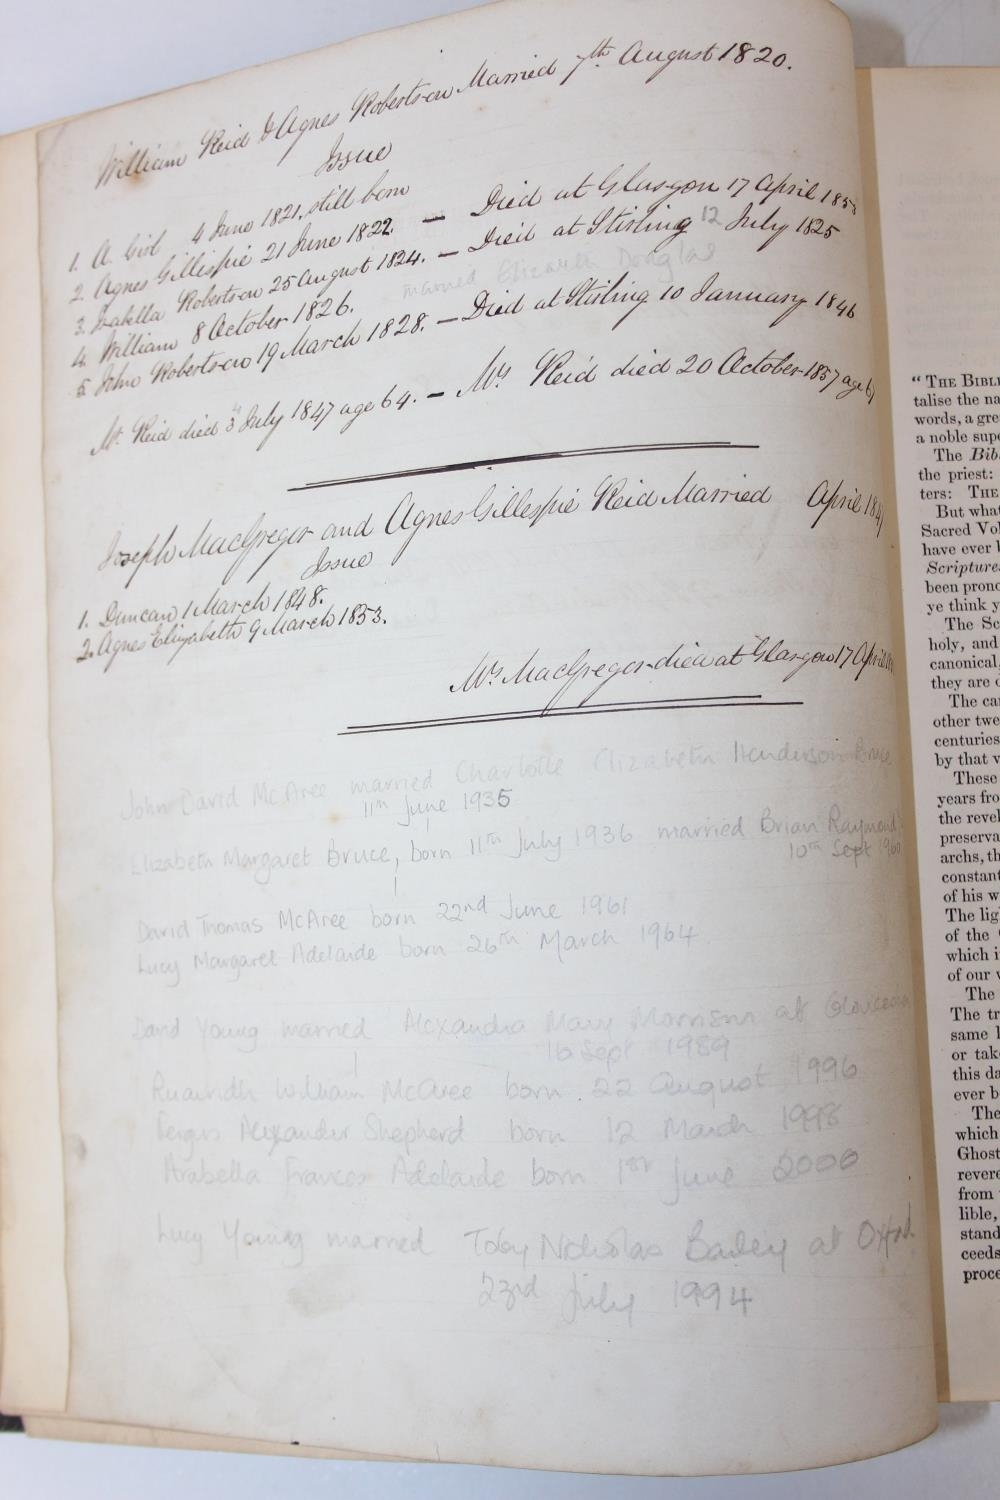 William Reid & Agnes Robertson Married 7th August 1820.
Issue
1. A Girl 4 June 1821, still born
2. Agnes Gillespie 21 June 1822. — Died at Glasgow 17 April 1853
3. Isabella Robertson 25 August 1824. — Died at Stirling 12 July 1825
4. William 8 October 1826. married Elizabeth Douglas
5 John Robertson 19 March 1828. — Died at Stirling 10 January 1846
Mr. Reid died 3d July 1847 age 64. — Mrs Reid died 20 October 1857 age
Joseph MacGregor and Agnes Gillespie Reid Married April 184
Issue
1. Duncan 1 March 1848.
2. Agnes Elizabeth 9 March 1853.
Mrs MacGregor died at Glasgow 17 April
John David McAree married Charlotte Elizabeth Henderson Bruce
11th June 1935
Elizabeth Margaret Bruce, born 11th July 1936 married Brian Raymond
10th Sept 1960
David Thomas McAree born 22nd June 1961
Lucy Margaret Adelaide born 26th March 1964
David Young married Alexandra Mary Morrison at
16 Sept 1989
Ruairidh William McAree born 22 August 1996
Fergus Alexander Shepherd born 12 March 1998
Arabella Frances Adelaide born 1st June 2000
Lucy Young married Toby Nicholas Bailey at Oxford
23rd July 1994
" The Bibl
talise the na
words, a gre
a noble supe
The Bib
the priest:
ters: The
But what
Sacred Vol
have ever b
Scriptures
been prono
ye think y
The Sc
holy, and
canonical,
they are d
The ca
other twe
centuries
by that v
These
years fro
the revel
preserva
archs, th
constant
of his w
The lig
of the
which i
of our v
The
The tr
same l
or tak
this da
ever b
The
which
Ghost
revere
from
lible,
stand
ceeds
proce